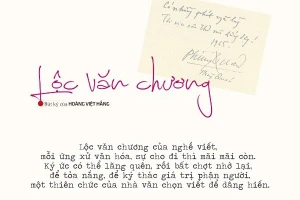 Lộc văn chương
Bút ký của HOÀNG VIỆT HẰNG
1985
Lộc văn chương của nghề viết,
mỗi ứng xử văn hóa, sự cho đi thì mãi mãi còn.
Ký ức có thể lãng quên, rồi bất chợt nhớ lại,
để tỏa nắng, để ký thác giá trị phận người,
một thiên chức của nhà văn chọn viết để dâng hiến.